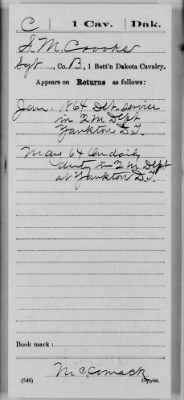 C | 1 Cav. | Dak.
S. M. Crooks
Sgt., Co. B, 1 Batt'n Dakota Cavalry.
Appears on Returns as follows:
Jan. 1864 Det. service
in Q M Dept
Yankton D.T.
May 64 On daily
duty in Q M Dept
at Yankton D.T.
Book mark:
McCormack
(546) Copyist.